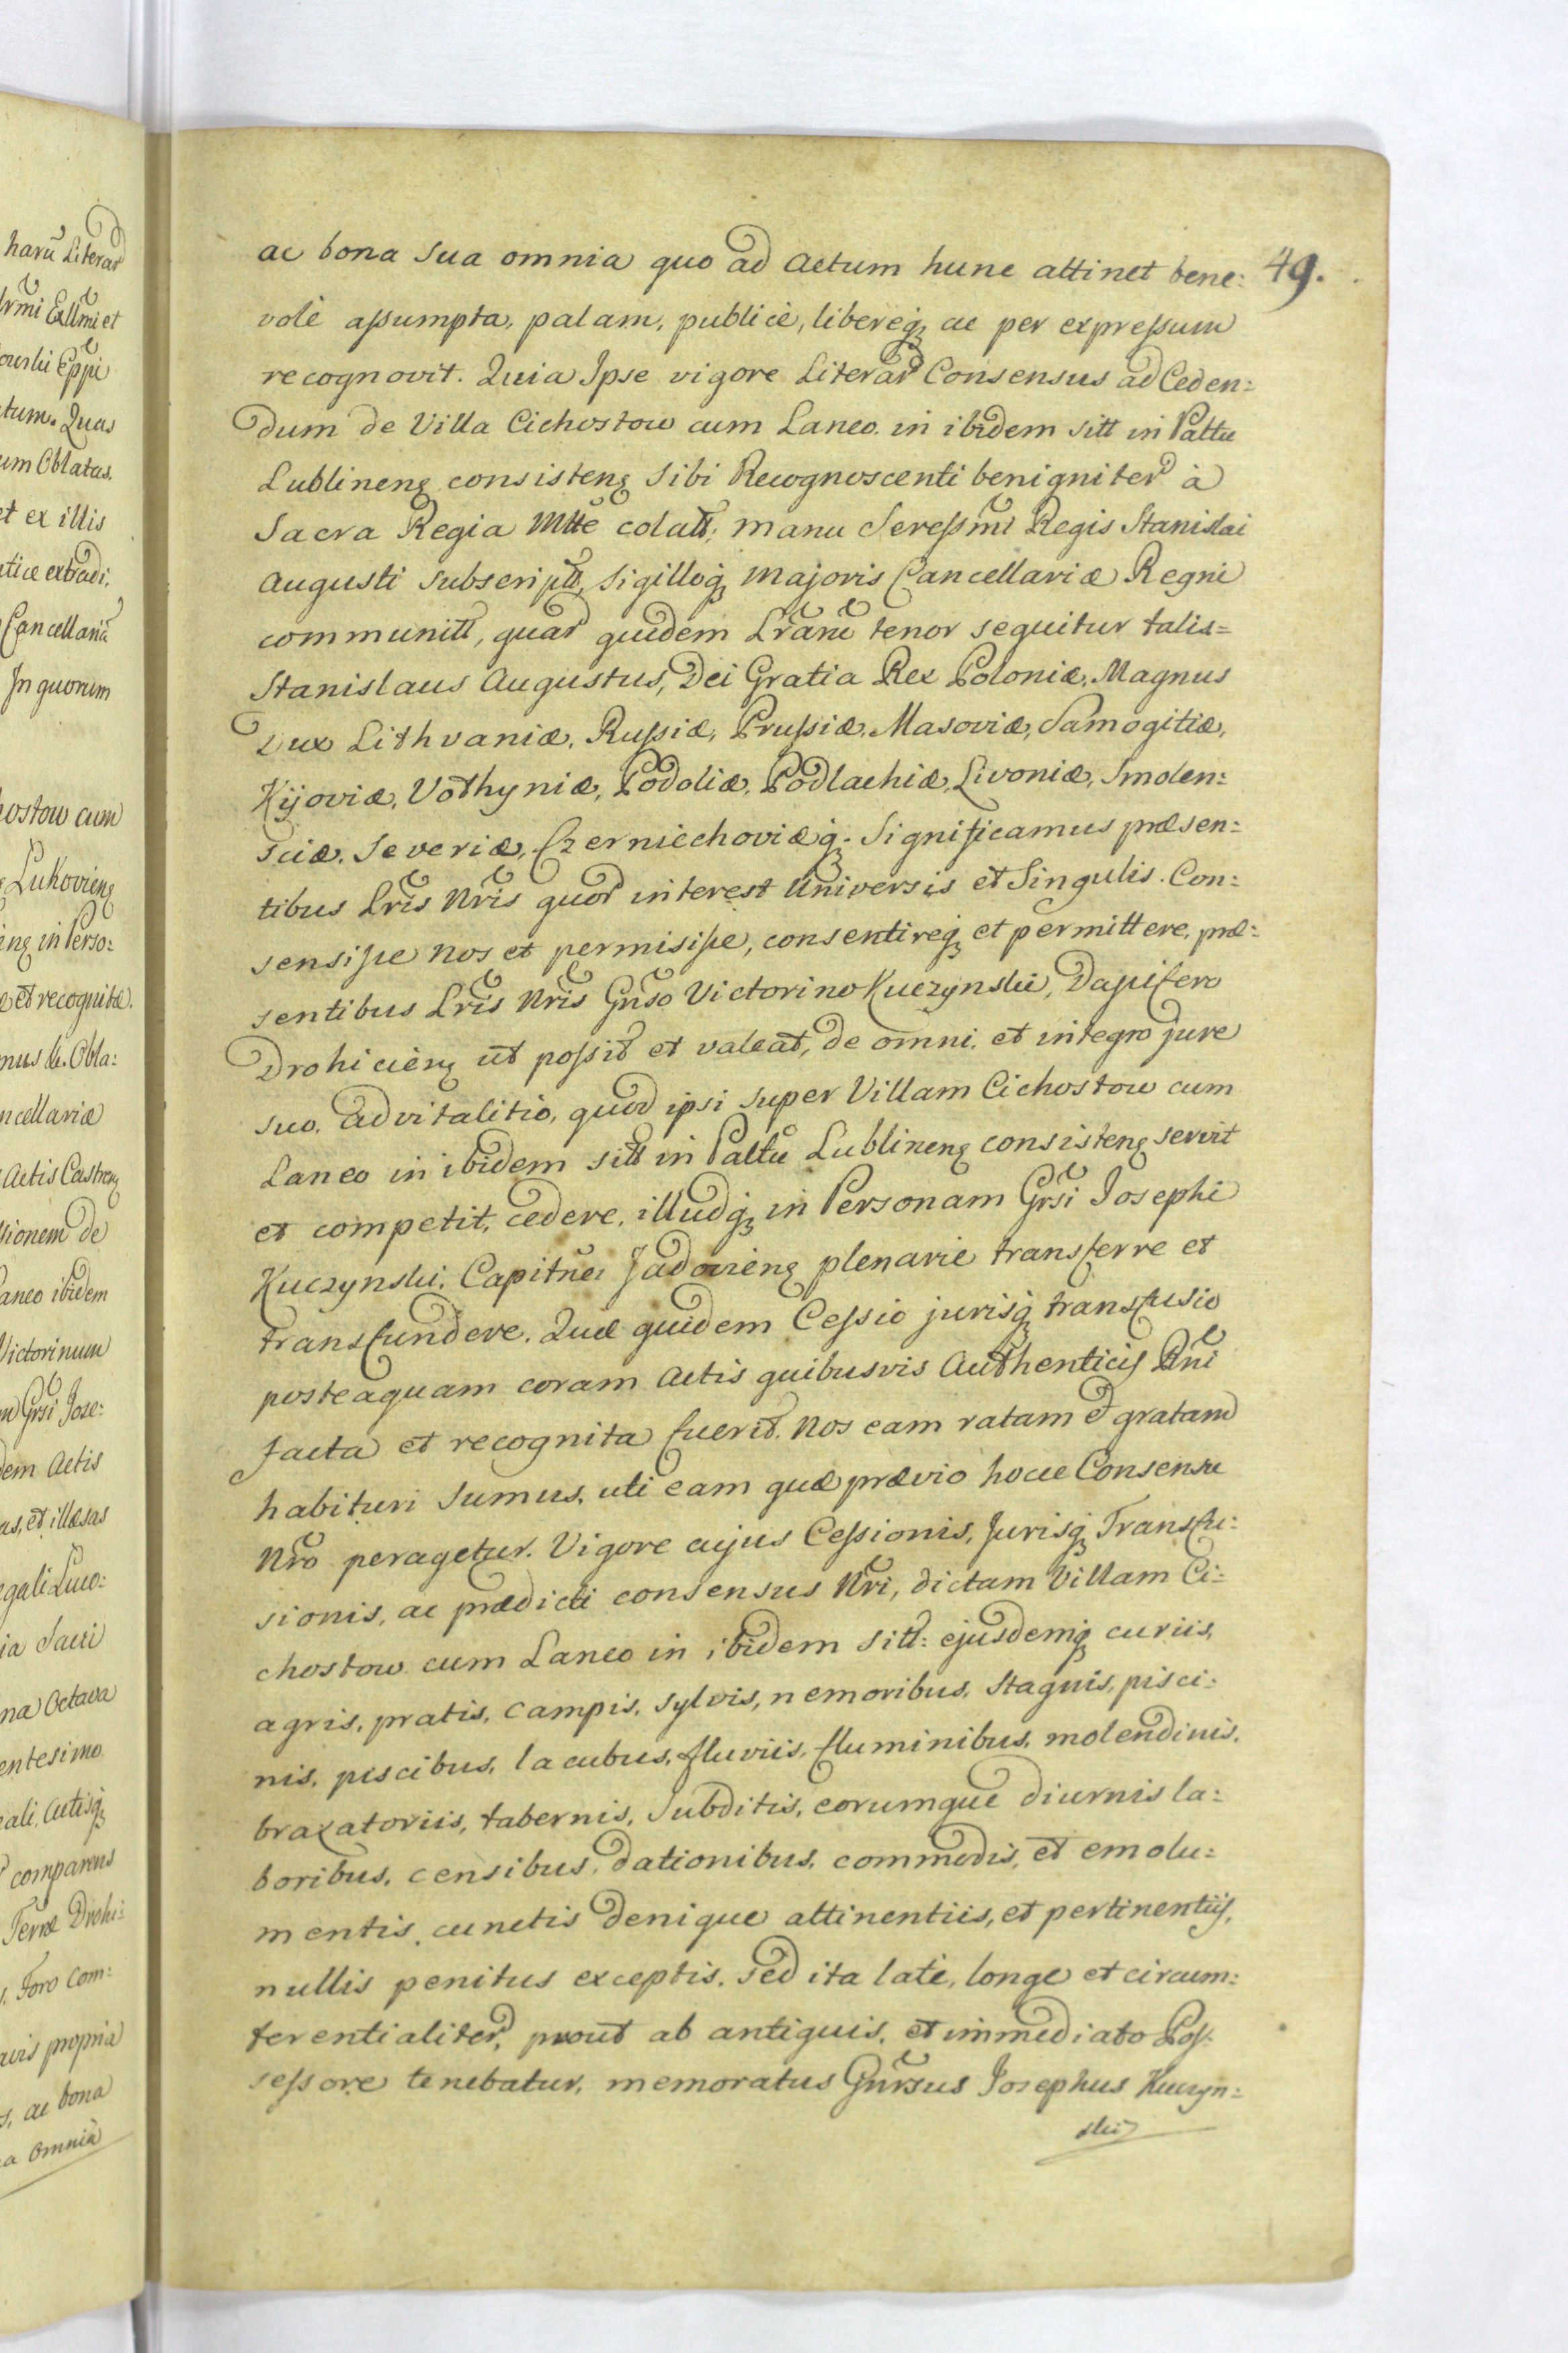 ac bona sua omnia quo ad Actum hunc attinet bene:
49.
volè assumpta, palam, publicè, libereq; ac per expressum
recognovit. Quia Ipse vigore Literar Consensus ad Ceden:
dum de Villa Cichostow cum Laneo in ibidem sitt in Pattu
Lublineng consisteng Sibi Recognoscenti benigniter à
Sacra Regia Mtte colatt, manu Seressmi Regis Stanislai
Augusti subscriptt, Sigilloq; Majoris Cancellariæ Regni
communitt, quar quidem Lrarū tenor sequitur talis=
Stanislaus Augustus, Dei Gratia Rex Poloniæ, Magnus
Dux Lithvaniæ, Russiæ, Prussiæ, Masoviæ, Samogitiæ,
Kijoviæ, Volhyniæ, Podoliæ, Podlachiæ, Livoniæ, Smolen:
sciæ, Severiæ, Czerniechoviæq;. Significamus præsen:
tibus Lris Nris quor interest Universis et Singulis. Con:
sensisse Nos et permisisse, consentireq; et permittere, præ:
sentibus Lris Nris Gnso Victorino Kuczynski, Dapifero
Drohicieng ut possit et valeat, de omni, et integro jure
suo, advitalitio, quod ipsi super Villam Cichostow cum
Laneo in ibidem sitt in Pattu Lublineng consisteng servit
et competit, cedere, illudq; in Personam Grsi Josephi
Kuczynski, Capitnei Jadovieng plenarie transferre et
transfundere. Quæ quidem Cessio jurisq; transfusio
posteaquam coram Actis quibusvis Authenticis Rni
facta et recognita fuerit. Nos eam ratam et gratam
habituri sumus, uti eam quæ prævio hocce Consensu
Nro peragetur. Vigore cujus Cessionis, Jurisq; Transfu:
sionis, ac prædicti consensus Nri, dictam Villam Ci:
chostow cum Laneo in ibidem sitt: ejusdemq; curiis,
agris, pratis, campis, sylvis, nemoribus, stagnis, pisci:
nis, piscibus, lacubus, fluviis, fluminibus, molendinis,
braxatoriis, tabernis, Subditis, eorumque diurnis la:
boribus, censibus, dationibus, commodis, et emolu:
mentis, cunctis denique attinentiis, et pertinentiis,
nullis penitus exceptis, sed ita latè, longe et circum:
ferentialiter, prout ab antiquis, et immediato Pos:
sessore tenebatur, memoratus Gnrsus Josephus Kuczyn:
ski
harū Literar
Exllmi et
Eppi
tum. Quas
um Oblatas.
et ex illis
extradi,
Cancellariæ
In quorum
hostow cum
Lukovieng
ing in Perso:
et recognitæ.
mus &. Obla:
ncellariæ
Actis Castreng
sionem de
Laneo ibidem
Victorinum
m Grsi Jose:
dem Actis
as, et illæsas
egali Luco:
ia Sacri
na Octava
entesimo
eali, Actisq;
comparens
Terræ Drohi:
s, Foro Com:
propria
s, ac bona
a omnia